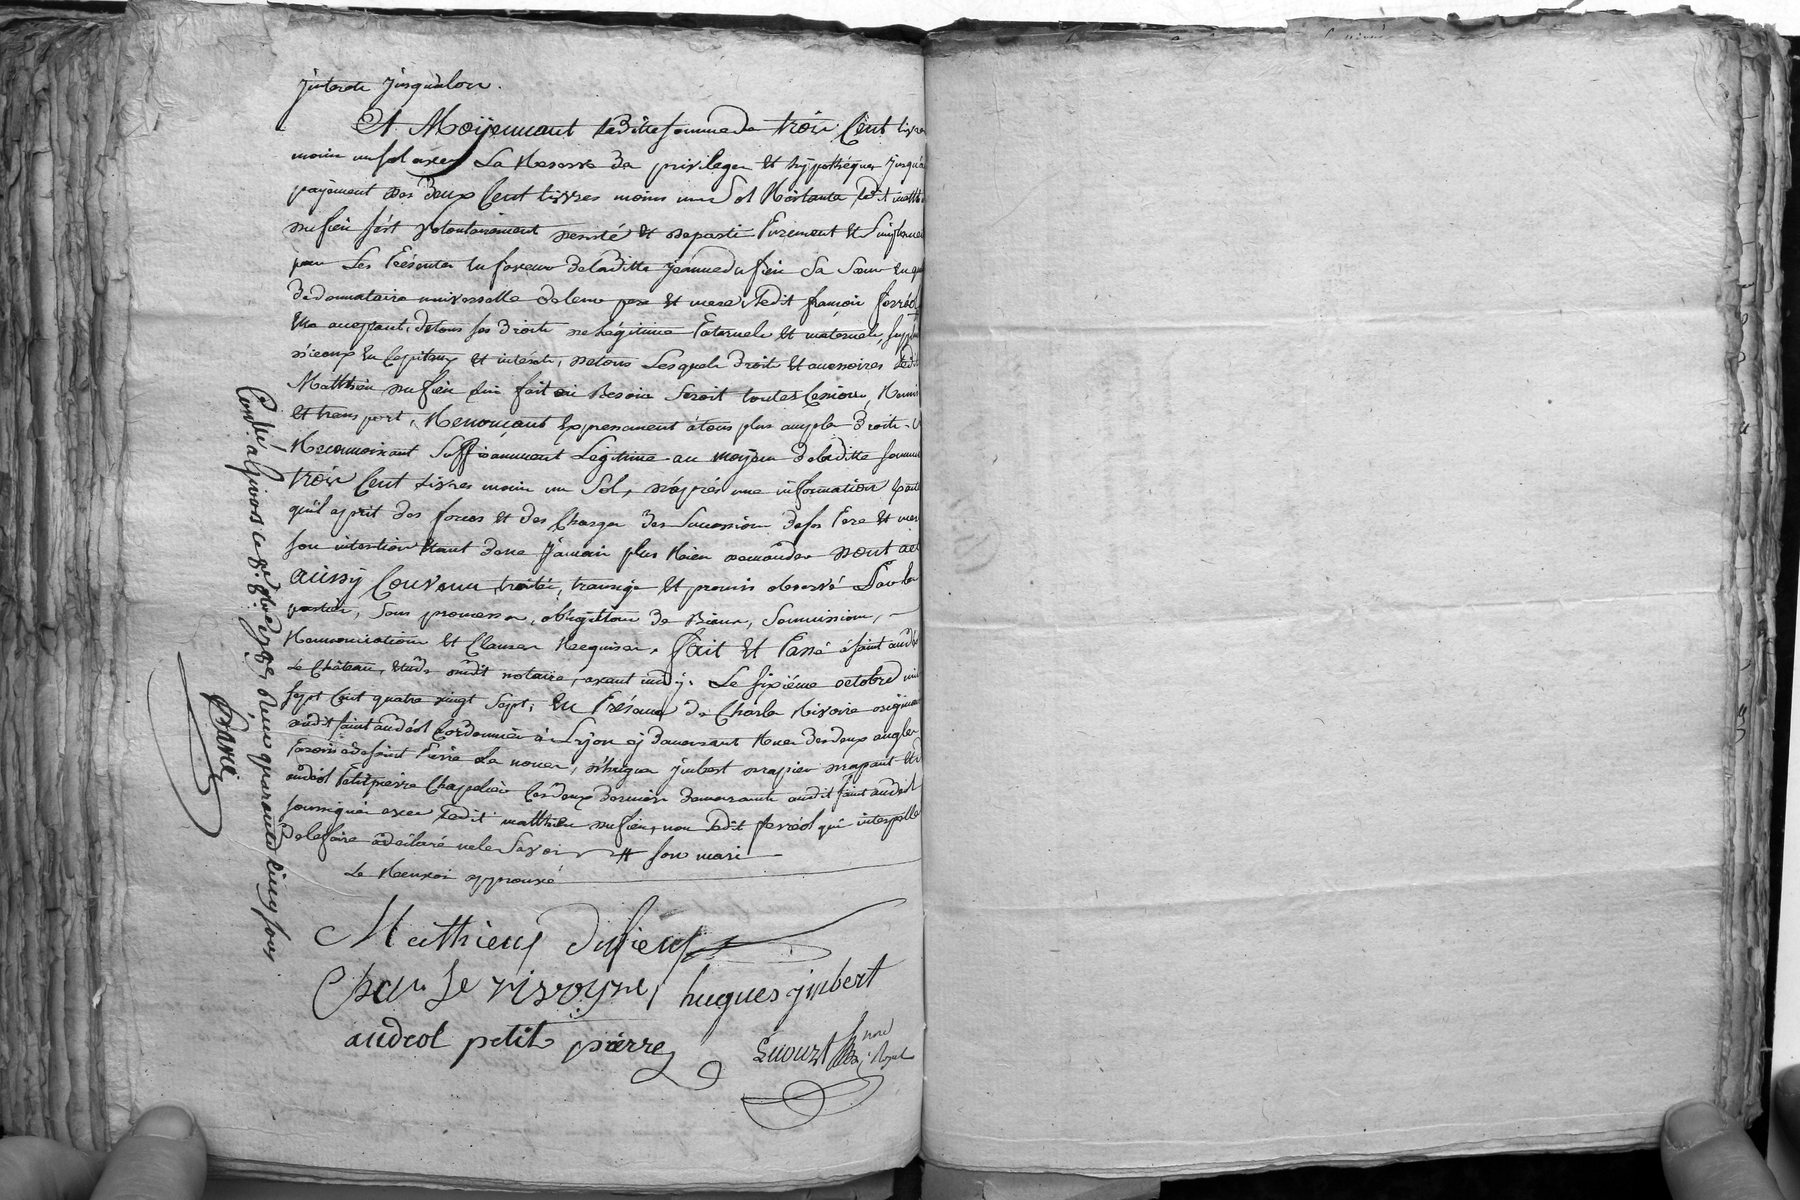 jnterets jusqualors.
Et Moyennant laditte somme de trois Cent livres
moins un sol avec La Reserve de privilege et hypotheques jusqu'a
payement des deux Cent livres moins un Sol Restante ledit matthieu
dufieu s'est volontairement desisté et departi Purement et Simplement
par Les Présentes en faveur de laditte jeanne dufieu Sa sœur en qualité
de donnataire universelle de leurs pere et mere, ledit françois ferréol
acceptant, de tous ses droits de légitime Paternels et maternels, supplement
d'iceux En Capitaux et intérêts, de tous Lesquels droits et accessoires ledit
Matthieu dufieu lui fait au Besoin Seroit toutes Cessions, Remises
et transport, Renonçant Expressement à tous plus amples droits, Se
Reconnoissant Suffisamment Légitimé au moyen de laditte somme
trois Cent Livres moins un Sol, d'après une information Exacte
qu'il a prit des forces et des Charges des Successions de ses Pere et mere
son intention étant de ne jamais plus Rien demander dont a été
aussy Convenu, traitté, transigé et promis observé Par les
parties, Sous promesses, obligations de Biens, Soumissions,
Renonciations et Clauses Requises. fait et Passé à saint andéol
Le Château, Etude dudit notaire, avant midy. Le sixième octobre mil
sept Cent quatre vingt Sept, En Présence de Charle Rivoire originaire
dudit saint andéol Cordonnier à Lyon y demeurant Rue des deux angles
Paroisse de saint Pierre La nouer, d'hugues jmbert drapier drapant et d'
andéol Petitpierre Chapelier Ces deux derniers demeurants audit saint andéol
soussignés avec ledit matthieu dufieu, non ledit ferréol qui interpellé
de le faire à déclaré ne le Savoir # son mari
Le Renvoi approuvé
Matthieu dufieu
Charle rivoyre hugues jmbert
andeol petit pierre
nore Royal
Conlé. a Givors ce 8. 8bre 1787, Reçu quarante Cinq sous